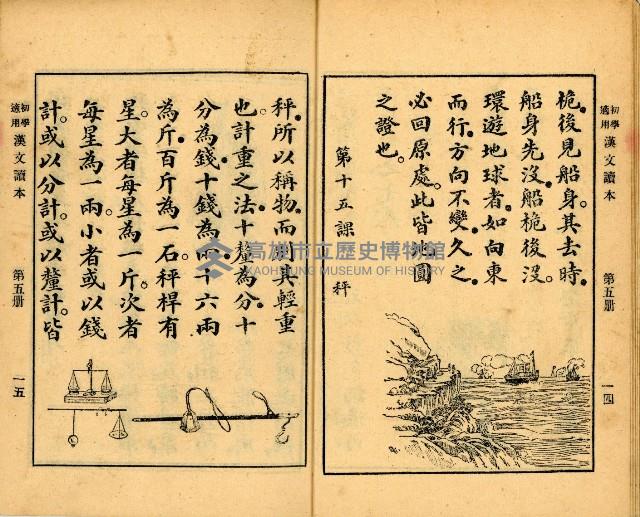 初學適用 漢文讀本 第五册 一四
桅後見船身。其去時。
船身先沒。船桅後沒。
環遊地球者。如向東
而行。方向不變。久之。
必回原處。此皆地圓
之證也。
第十五課 秤
高雄市立歷史博物館
KAOHSIUNG MUSEUM OF HISTORY
秤。所以稱物。而知其輕重
也。計重之法。十釐為分。十
分為錢。十錢為兩。十六兩
為斤。百斤為一石。秤桿有
星。大者每星為一斤。次者
每星為一兩。小者或以錢
計。或以分計。或以釐計。皆
初學適用 漢文讀本 第五册 一五